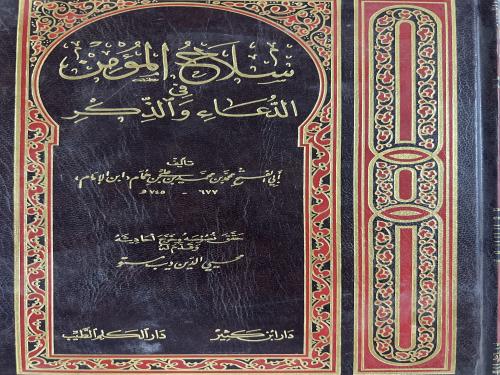 سِلَاحُ المُؤْمِنِ
فِي
الدُّعَاءِ وَالذِّكْرِ
تأليف
أبي الفتح محمد بن محمد بن علي بن همام «ابن الإمام»
٦٧٧ ٧٤٥ هـ
حقق نصوصه وخرج أحاديثه
وقدم له
محيي الدين ديب مستو
دار ابن كثير
دار الكلم الطيب